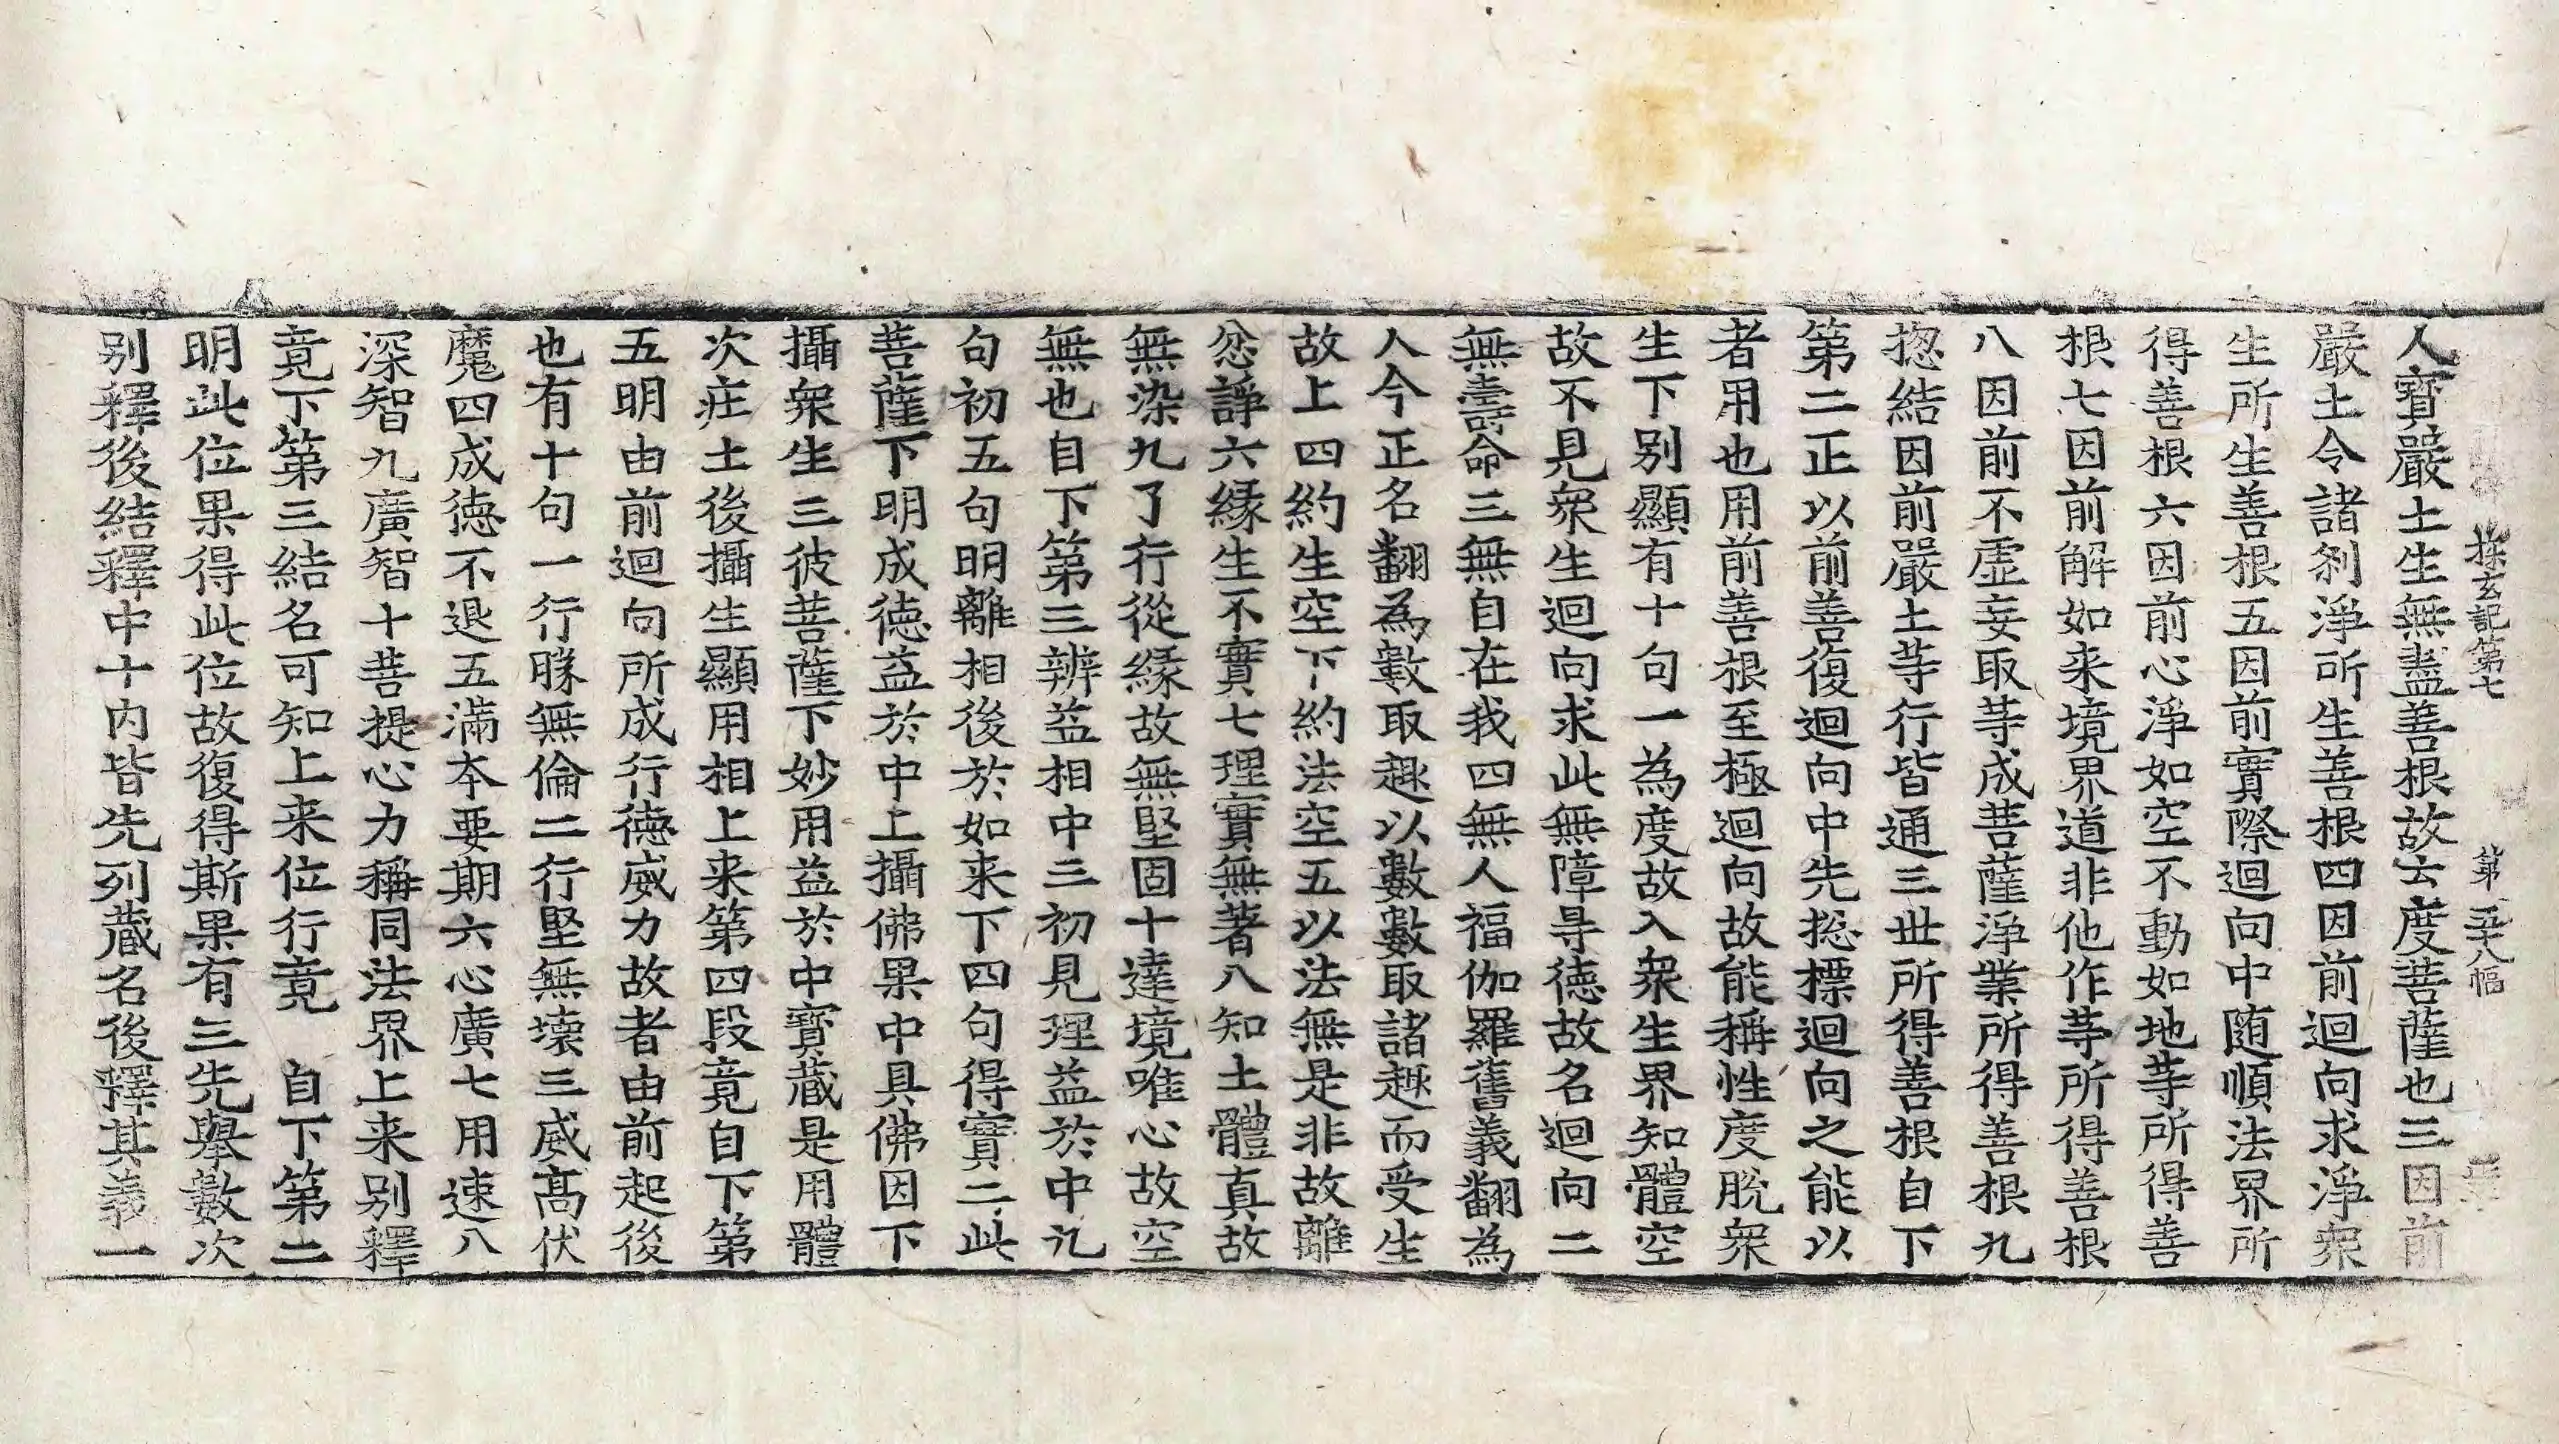 探玄記第七 第二十八幅
人寶嚴土生無盡善根故云度菩薩也三因前
嚴土令諸刹淨所生善根四因前迴向求淨衆
生所生善根五因前實際迴向中随順法界所
得善根六因前心淨如空不動如地䓁所得善
根七因前解如来境界道非他作䓁所得善根
八因前不虛妄取䓁成菩薩淨業所得善根九
揔結因前嚴土䓁行皆通三世所得善根自下
第二正以前善復迴向中先揔標迴向之能以
者用也用前善根至極迴向故能稱性度脫衆
生下别顯有十句一為度故入衆生界知體空
故不見衆生迴向求此無障㝵德故名迴向二
無壽命三無自在我四無人福伽羅舊義翻為
人今正名翻為數取趣以數數取諸趣而受生
故上四約生空下約法空五以法無是非故離
忿諍六緣生不實七理實無著八知土體真故
無染九了行從緣故無堅固十達境唯心故空
無也自下第三辨益相中三初見理益於中九
句初五句明離相後於如来下四句得實二此
菩薩下明成德益於中上攝佛果中具佛因下
攝衆生三彼菩薩下妙用益於中寶藏是用體
次庄土後攝生顯用相上来第四段竟自下第
五明由前迴向所成行德威力故者由前起後
也有十句一行勝無倫二行堅無壞三威髙伏
魔四成德不退五滿本要期六心廣七用速八
深智九廣智十菩提心力稱同法界上来别釋
竟下第三結名可知上来位行竟 自下第二
明此位果得此位故復得斯果有三先舉數次
别釋後結釋中十内皆先列藏名後釋其義一